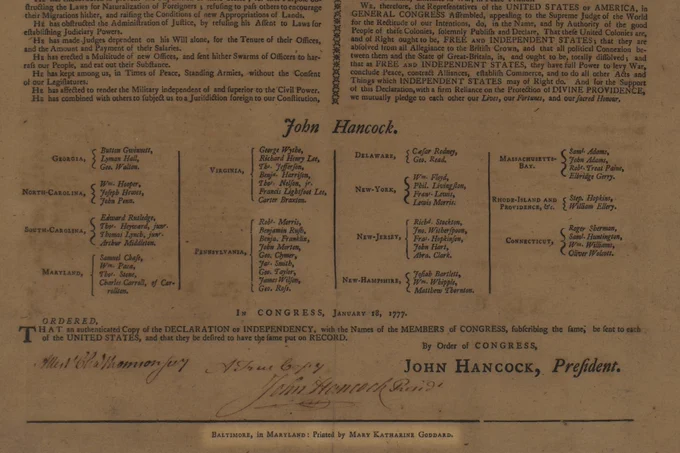 ſtructing the Laws for Naturalization of Foreigners; refuſing to paſs others to encourage
their Migrations hither, and raiſing the Conditions of new Appropriations of Lands.
He has obſtructed the Adminiſtration of Juſtice, by refuſing his Aſſent to Laws for
eſtabliſhing Judiciary Powers.
He has made Judges dependent on his Will alone, for the Tenure of their Offices,
and the Amount and Payment of their Salaries.
He has erected a Multitude of new Offices, and ſent hither Swarms of Officers to har-
raſs our People, and eat out their Subſtance.
He has kept among us, in Times of Peace, Standing Armies, without the Conſent
of our Legiſlatures.
He has affected to render the Military independent of and ſuperior to the Civil Power.
He has combined with others to ſubject us to a Juriſdiction foreign to our Conſtitution,
We, therefore, the Repreſentatives of the UNITED STATES of AMERICA, in
GENERAL CONGRESS Aſſembled, appealing to the Supreme Judge of the World
for the Rectitude of our Intentions, do, in the Name, and by Authority of the good
People of theſe Colonies, ſolemnly Publiſh and Declare, That theſe United Colonies are,
and of Right ought to be, FREE and INDEPENDENT STATES; that they are
abſolved from all Allegiance to the Britiſh Crown, and that all political Connexion be-
tween them and the State of Great-Britain, is, and ought to be, totally diſſolved; and
that as FREE and INDEPENDENT STATES, they have full Power to levy War,
conclude Peace, contract Alliances, eſtabliſh Commerce, and to do all other Acts and
Things which INDEPENDENT STATES may of Right do. And for the Support
of this Declaration, with a firm Reliance on the Protection of DIVINE PROVIDENCE,
we mutually pledge to each other our Lives, our Fortunes, and our ſacred Honour.
John Hancock.
Georgia,
Button Gwinnett,
Lyman Hall,
Geo. Walton.
North-Carolina,
Wm. Hooper,
Joſeph Hewes,
John Penn.
South-Carolina,
Edward Rutledge,
Thos. Heyward, junr.
Thomas Lynch, junr.
Arthur Middleton.
Maryland,
Samuel Chaſe,
Wm. Paca,
Thos. Stone,
Charles Carroll, of Car-
rollton.
Virginia,
George Wythe,
Richard Henry Lee,
Ths. Jefferſon,
Benja. Harriſon,
Thos. Nelſon, jr.
Francis Lightfoot Lee,
Carter Braxton.
Pennsylvania,
Robt. Morris,
Benjamin Ruſh,
Benja. Franklin,
John Morton,
Geo. Clymer,
Jas. Smith,
Geo. Taylor,
James Wilſon,
Geo. Roſs.
Delaware,
Cæſar Rodney,
Geo. Read.
New-York,
Wm. Floyd,
Phil. Livingſton,
Frans. Lewis,
Lewis Morris.
New-Jersey,
Richd. Stockton,
Jno. Witherſpoon,
Fras. Hopkinſon,
John Hart,
Abra. Clark.
New-Hampshire,
Joſiah Bartlett,
Wm. Whipple,
Matthew Thornton.
Massachusetts-
Bay,
Saml. Adams,
John Adams,
Robt. Treat Paine,
Elbridge Gerry.
Rhode-Island and
Providence, &c.
Step. Hopkins,
William Ellery.
Connecticut,
Roger Sherman,
Saml. Huntington,
Wm. Williams,
Oliver Wolcott.
In CONGRESS, January 18, 1777.
ORDERED,
THAT an authenticated Copy of the DECLARATION of INDEPENDENCY, with the Names of the MEMBERS of CONGRESS, ſubſcribing the ſame, be ſent to each
of the UNITED STATES, and that they be deſired to have the ſame put on RECORD.
By Order of CONGRESS,
JOHN HANCOCK, Preſident.
Atteſt Chas Thomson ſecy
A True Copy
John Hancock Presidt
Baltimore, in Maryland: Printed by Mary Katharine Goddard.